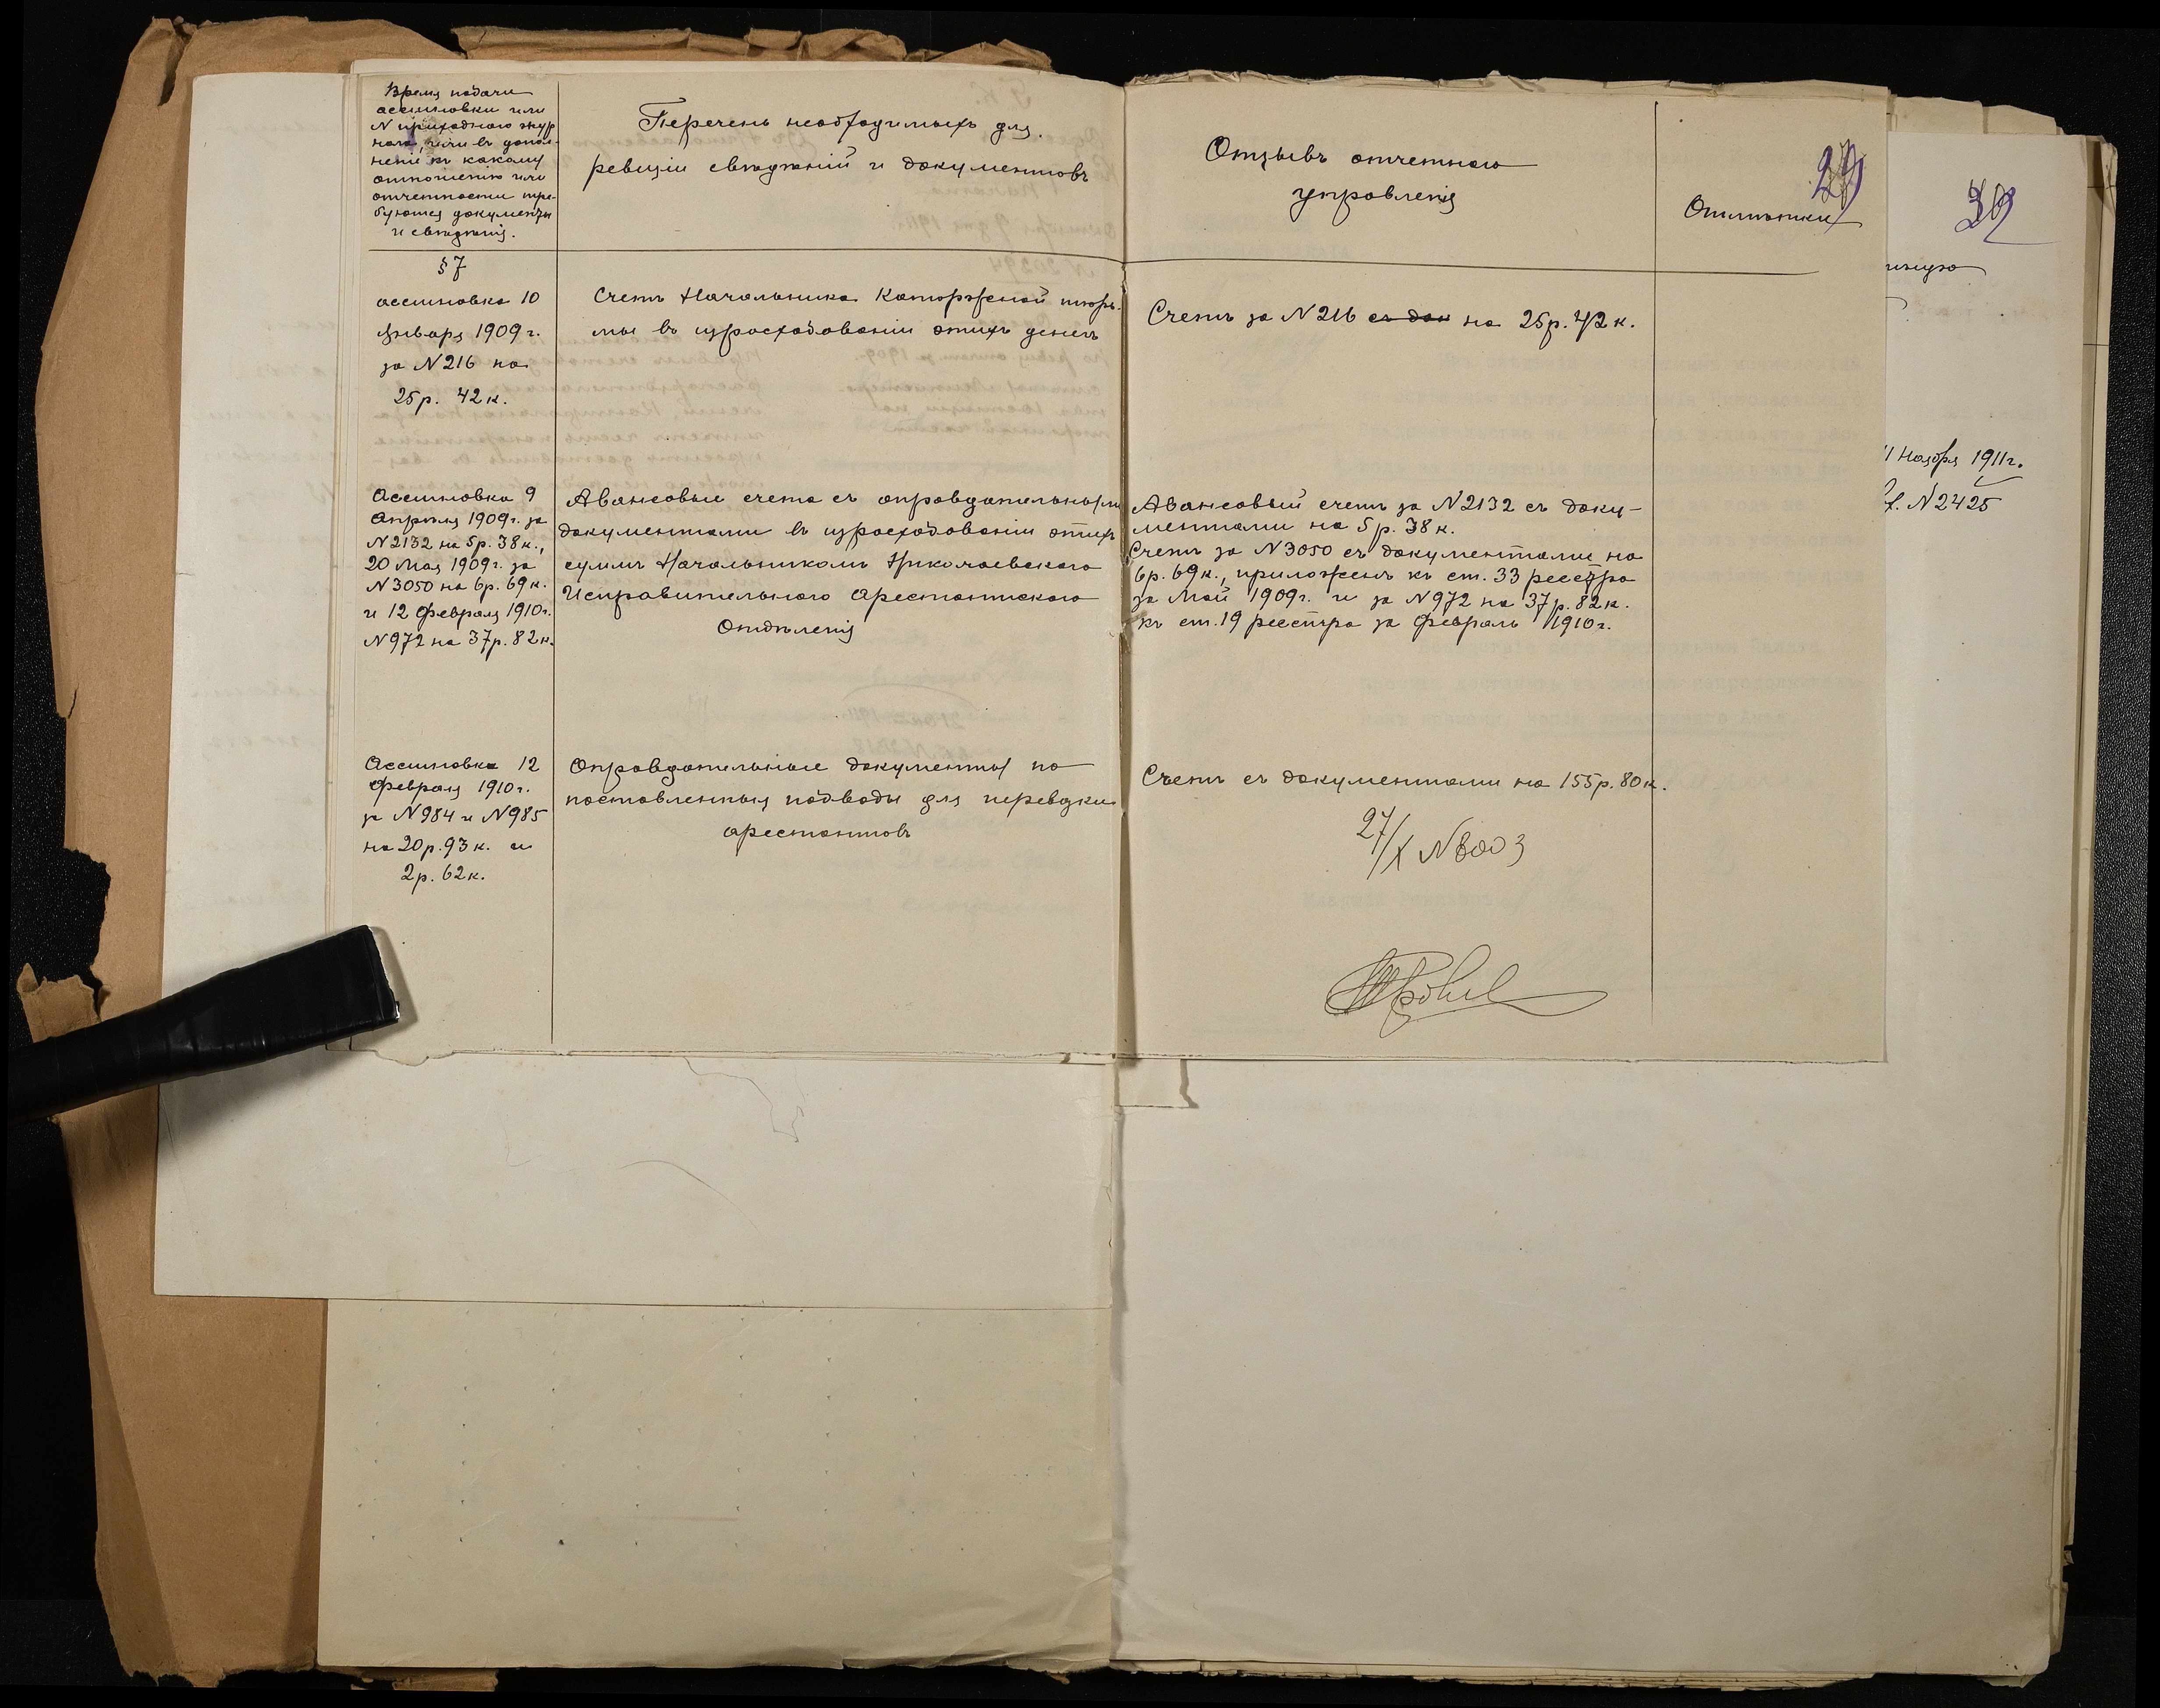 Время подачи
ассигновки или
N приходного жур
нала, или въ допол-
неніе къ какому
отношенію или
отчетности тре-
буются документы
и свѣдѣнія.
Перечень необходимыхъ для
ревизіи свѣдѣній и документовъ
Отзывъ отчетнаго
управленія
Отмѣтки
29
§ 7
ассигновка 10
Января 1909 г.
за N 216 на
25 р. 42 к.
Счетъ Начальника Каторжной тюрь-
мы въ израсходованіи этихъ денегъ
Счетъ за N 216 съ док на 25 р. 42 к.
Ассигновка 9
Апрѣля 1909 г. за
N 2132 на 5 р. 38 к.,
20 Мая 1909 г. за
N 3050 на 6 р. 69 к.
и 12 Февраля 1910 г.
N 972 на 37 р. 82 к.
Авансовые счета съ оправдательными
документами въ израсходованіи этихъ
суммъ Начальникомъ Николаевскаго
Исправительнаго Арестантскаго
Отдѣленія
Авансовый счетъ за N 2132 съ доку-
ментами на 5 р. 38 к.
Счетъ за N 3050 съ документами на
6 р. 69 к., приложенъ къ ст. 33 реестра
за Май 1909 г. и за N 972 на 37 р. 82 к.
къ ст. 19 реестра за Февраль 1910 г.
Ассигновка 12
Февраля 1910 г.
за N 984 и N 985
на 20 р. 93 к. и
2 р. 62 к.
Оправдательные документы на
поставленныя подводы для перевозки
арестантовъ
Счетъ съ документами на 155 р. 80 к.
27/X N 8003
11 Ноября 1911 г.
N 2425